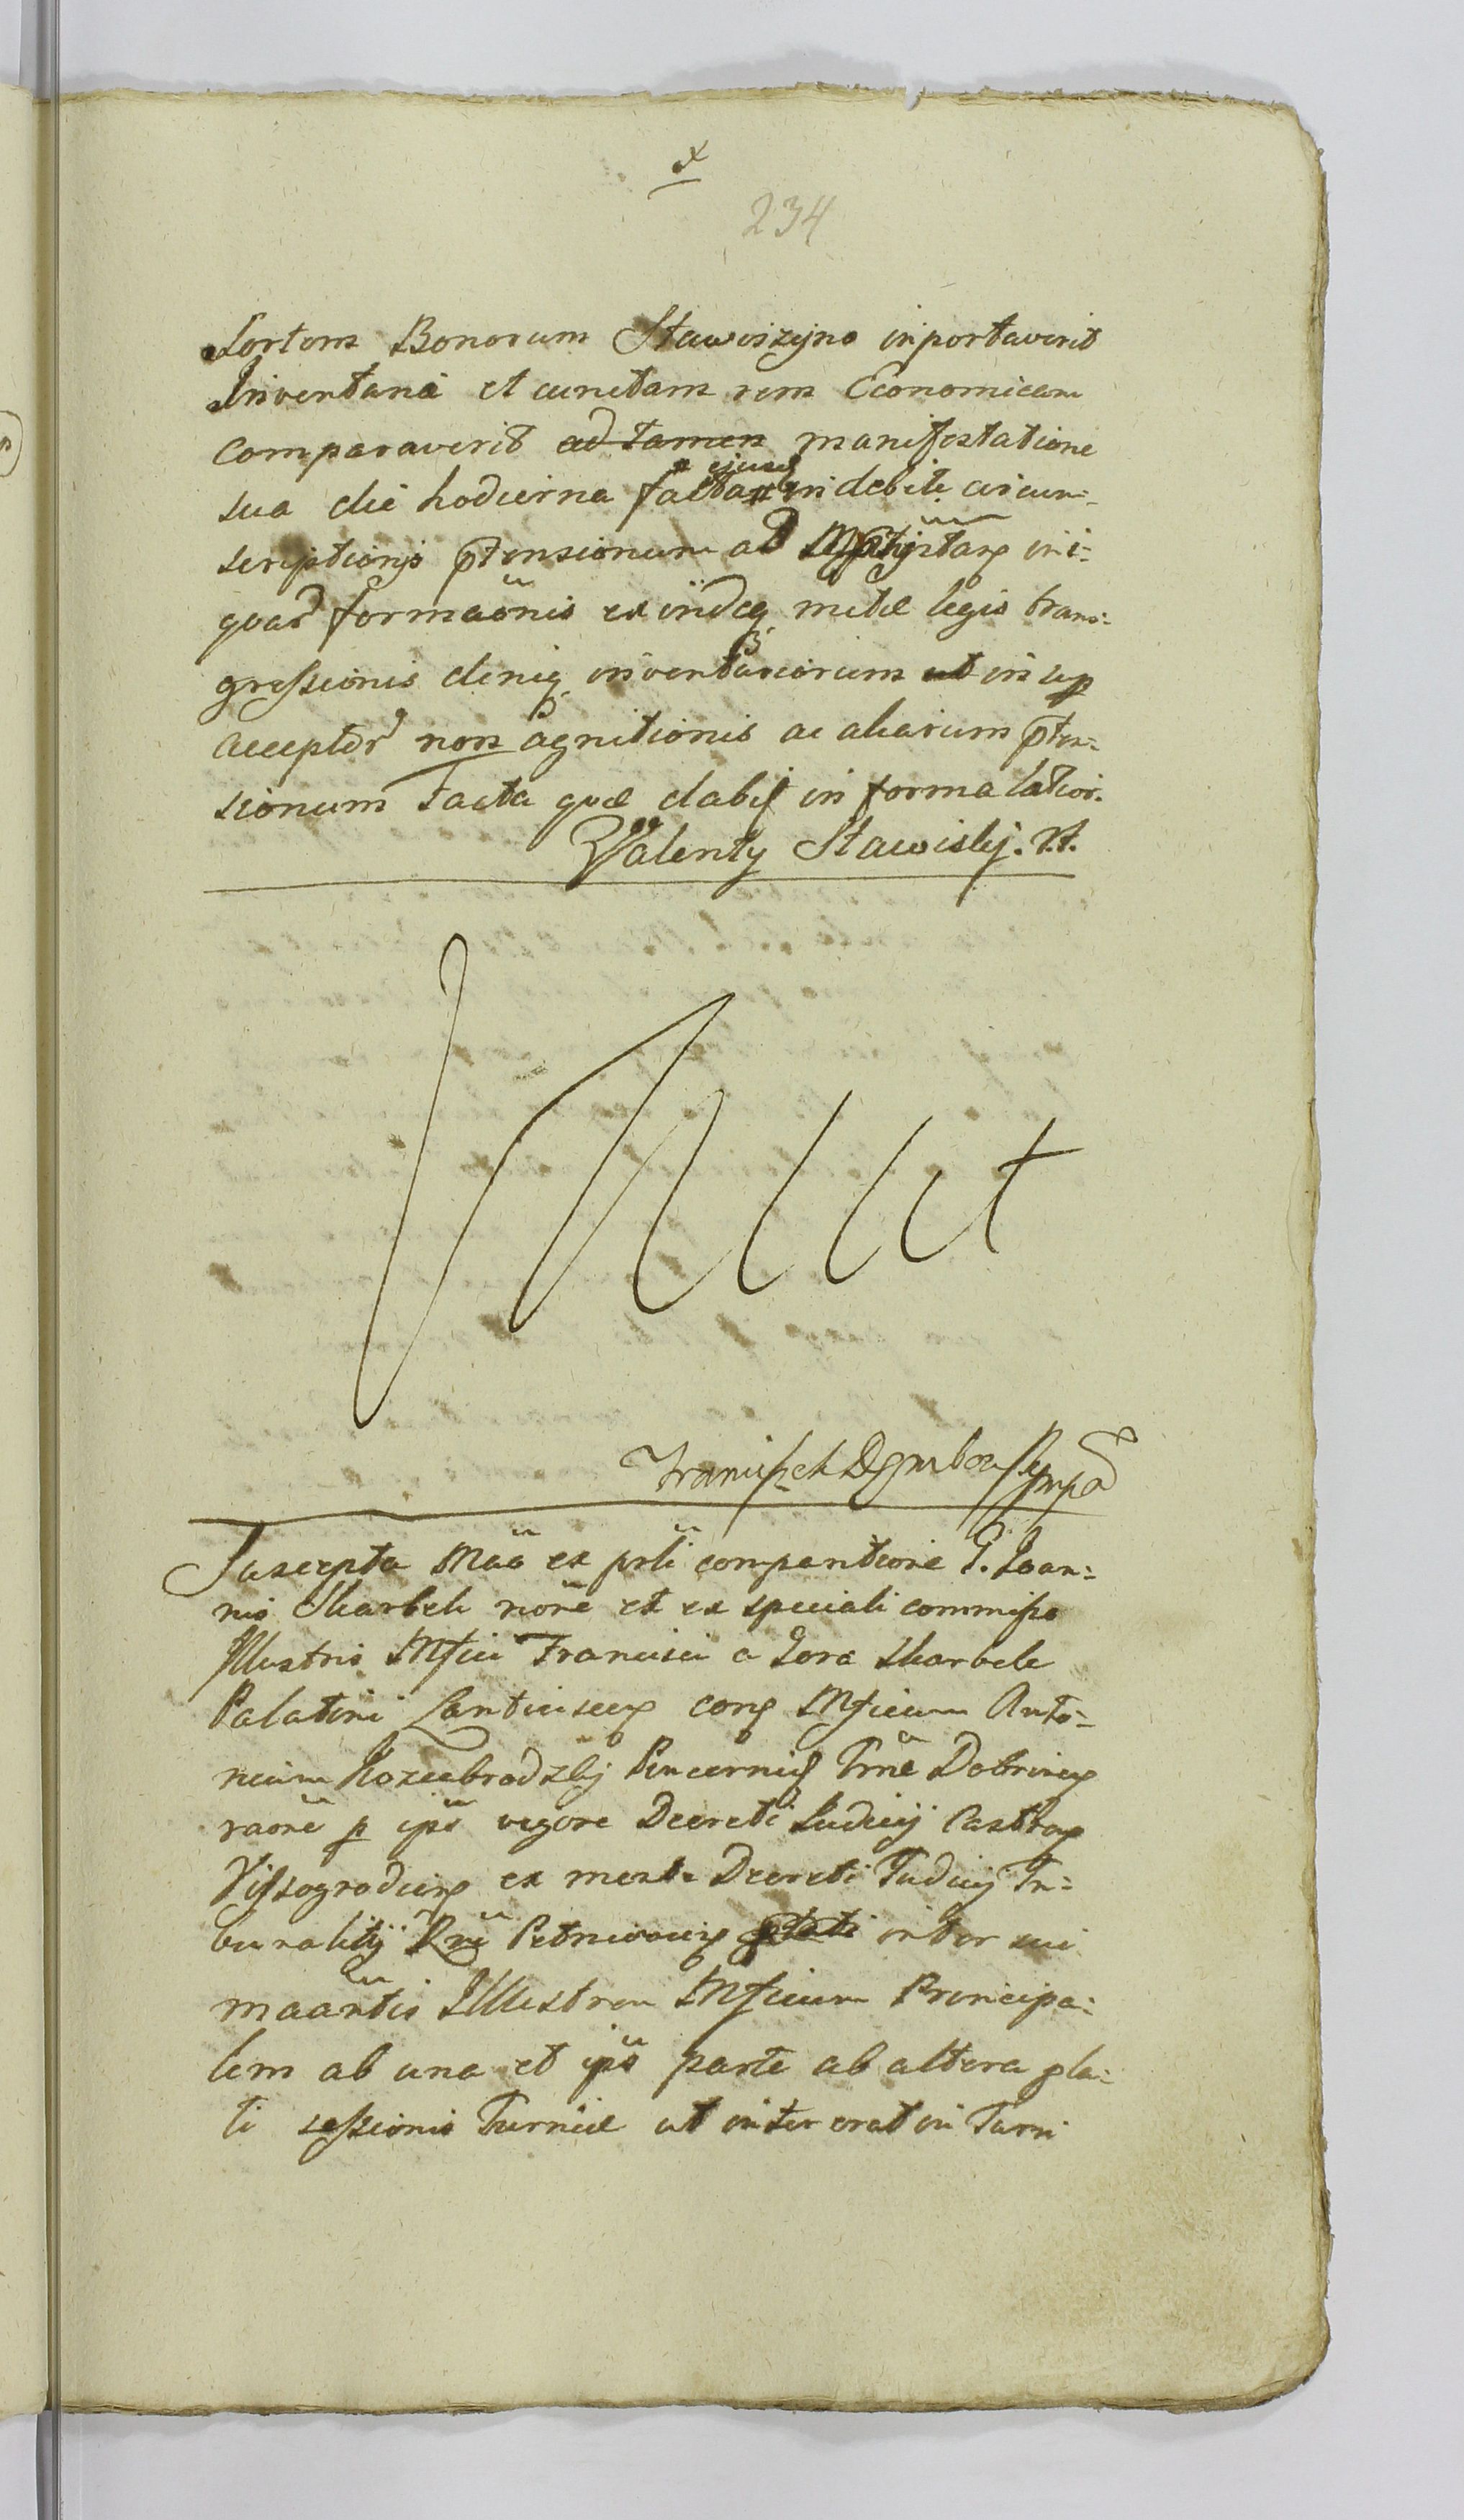 x
234
Sortem Bonorum Stawiszyno inportaverit
Inventaria et cunctam rem Economicam
comparaverit ad tamen manifestatione
sua die hodierna facta ejusq indebite circum-
scriptionis p̄tensionum ad ini=
quar formaõnis ex iisdeq metæ legis trans=
gressionis deniq inventariorum ut in sup
acceptor non agnitionis ac aliarum p̄ten=
sionum Facta quæ dabit in forma latior.
Walenty Stawiski. V.t.
Franciszek Dembowski mpd
Suscepta Maã ex prli comparitione G. Joan=
nis Skarbek noñe et ex speciali commisso
Illustris Mfici Francisci a Gora Skarbek
Palatini Lanciciens conq Mficum Anto=
nium Koziebrodzky Pincernid Trræ Dobrinens
raoñe p ipsũ vigore Decreti Judicij Castren
Vissogrodiens ex mente Decreti Judicij Tri=
bunalitij Rni Petricoviens inter sui
maantis Illustrem Mficum Principa=
lem ab una et ipsũ parte ab altera pla=
ti sessionis Turriæ ut inter erat in Turri